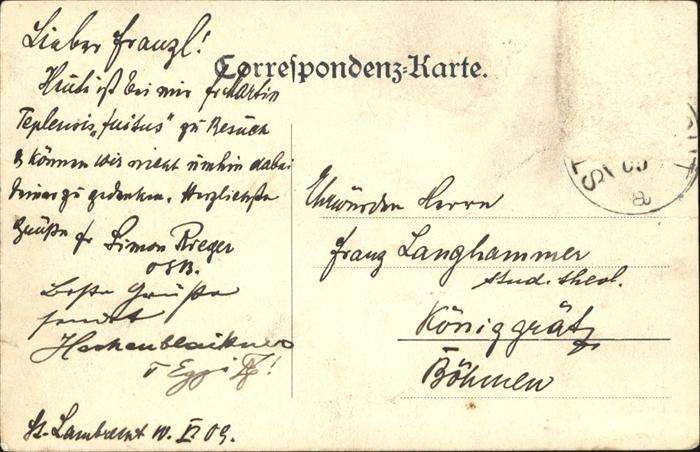 Correspondenz-Karte.
Lieber Franzl!
Heute ist bei mir fr Martin
Teplensis „fuitus“ zu Besuch
& können wir nicht umhin dabei
deiner zu gedenken. Herzlichste
Grüße fr Simon Rieger
OSB.
Beste Grüße
sendet
St. Lambrecht 10.
09.
Ehrwürden Herrn
Franz Langhammer
stud. theol.
Königgrätz
Böhmen
ST
09
a